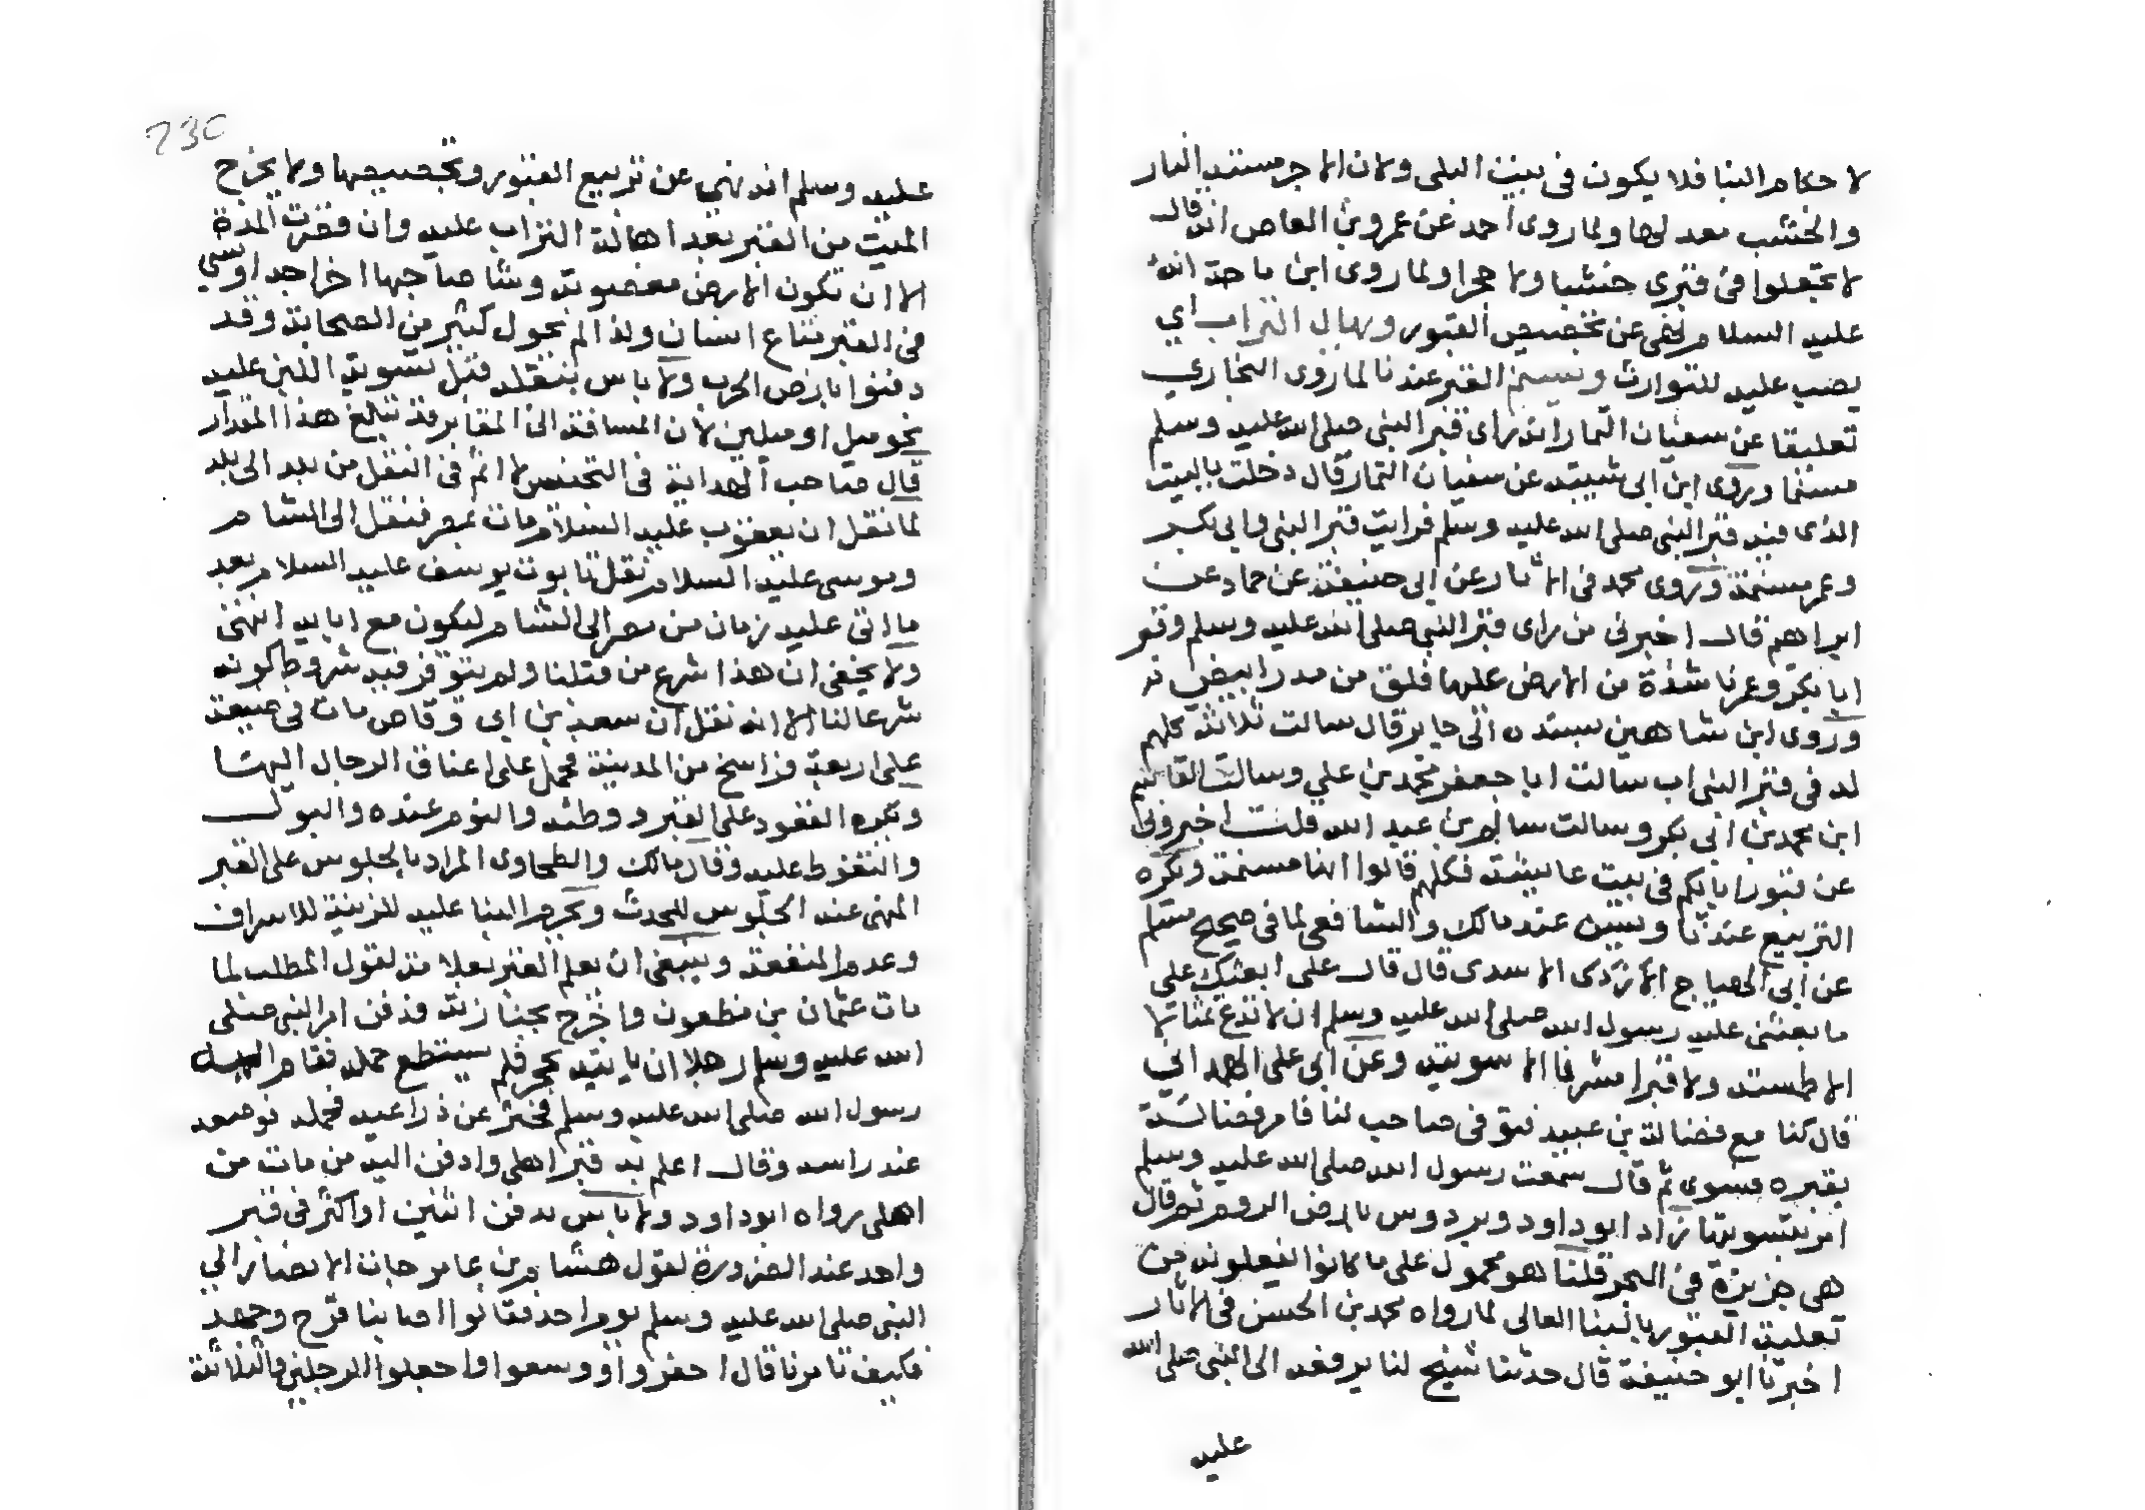 لاحكام البنا فلا يكون فى بيت البلى ولان الاجر مسته النار
والخشب معد لها ولما روى احمد عن عمرو بن العاص انه قال
لا تجعلوا فى قبرى خشبا ولا حجرا ولما روى ابن ماجة انه
عليه السلام نهى عن تجصيص القبور ويهال التراب اي
يصب عليه للتوارث ويسنم القبر عندنا لما روى البخاري
تعليقا عن سفيان التمار انه راى قبر النبى صلى الله عليه وسلم
مسنما وروى ابن ابى شيبة عن سفيان التمار قال دخلت بالبيت
الذى فيه قبر النبى صلى الله عليه وسلم فرايت قبر النبى وابى بكر
وعمر مسنمة وروى محمد فى الاثار عن ابى حنيفة عن حماد عن
ابراهم قال اخبرنى من راى قبر النبى صلى الله عليه وسلم وقبر
ابا بكر وعمر ناشزة من الارض عليها فلق من مدر ابيض
وروى ابن شاهين بسنده الى جابر قال سالت ثلاثة كلهم
له فى قبر النبى اب سالت ابا جعفر محمد بن علي وسالت القاسم
ابن محمد بن ابى بكر وسالت سالم بن عبد الله قلت اخبرونى
عن قبور ابايكم فى بيت عايشة فكلهم قالوا انها مسنمة ويكره
التربيع عندنا ويسن عند مالك والشافعى لما فى صحيح مسلم
عن ابى الهياج الازدى الاسدى قال قال على ابعثك على
ما بعثنى عليه رسول الله صلى الله عليه وسلم ان لا تدع تمثالا
الا طمسته ولا قبرا مشرفا الا سويته وعن ابى على الهمدانى
قال كنا مع فضالة بن عبيد فتوفى صاحب لنا فامر فضالة
بقبره فسوى ثم قال سمعت رسول الله صلى الله عليه وسلم
امر بتسويتها زاد ابو داود وبردوس بارض الروم ثم قال
هى جزيرة فى البحر قلنا هو محمول على ما كانوا يفعلونه من
تعلية القبور بالبنا العالى لما رواه محمد بن الحسن فى الاثار
اخبرنا ابو حنيفة قال حدثنا شيخ لنا يرفعه الى النبى صلى الله
عليه
عليه وسلم انه نهى عن تربيع القبور وتجصيصها ولا يخرج
الميت من القبر بعد اهالة التراب عليه وان قصرت المدة
الا ان تكون الارض مغصوبة وشا صاحبها اخراجه او نسي
فى القبر متاع انسان ولذا لم يحول كثير من الصحابة وقد
دفنوا بارض الحرب ولا باس بنقله قبل تسوية اللبن عليه
نحو ميل او ميلين لان المسافة الى المقابر قد تبلغ هذا المقدار
قال صاحب الهداية فى التجنيس لا اثم فى النقل من بلد الى بلد
لما نقل ان يعقوب عليه السلام مات بمصر فنقل الى الشام
وموسى عليه السلام نقل تابوت يوسف عليه السلام بعد
ما اتى عليه زمان من مصر الى الشام ليكون مع ابايه انتهى
ولا يخفى ان هذا شرع من قبلنا ولم يتوفر فيه شروط كونه
شرعا لنا الا انه نقل ان سعد بن ابى وقاص مات فى ضيعة
على اربعة فراسخ من المدينة فحمل على اعناق الرجال اليها
ويكره القعود على القبر ووطئه والنوم عنده والبول
والتغوط عليه وقال مالك والطحاوى المراد بالجلوس على القبر
المنهى عنه الجلوس للحدث ويحرم البنا عليه للزينة للاسراف
وعدم المنفعة وينبغى ان يعلم القبر بعلامة لقول المطلب لما
مات عثمان بن مظعون واخرج بجنازته فدفن امر النبى صلى
الله عليه وسلم رجلا ان ياتيه بحجر فلم يستطع حمله فقام اليه
رسول الله صلى الله عليه وسلم فحسر عن ذراعيه فحمله فوضعه
عند راسه وقال اعلم به قبر اهلى وادفن اليه من مات من
اهلى رواه ابو داود ولا باس بدفن اثنين او اكثر فى قبر
واحد عند الضرورة لقول هشام بن عامر جات الانصار الي
النبى صلى الله عليه وسلم يوم احد فقالوا اصابنا قرح وجهد
فكيف تامرنا قال احفروا ووسعوا واجعلوا الرجلين والثلاثة